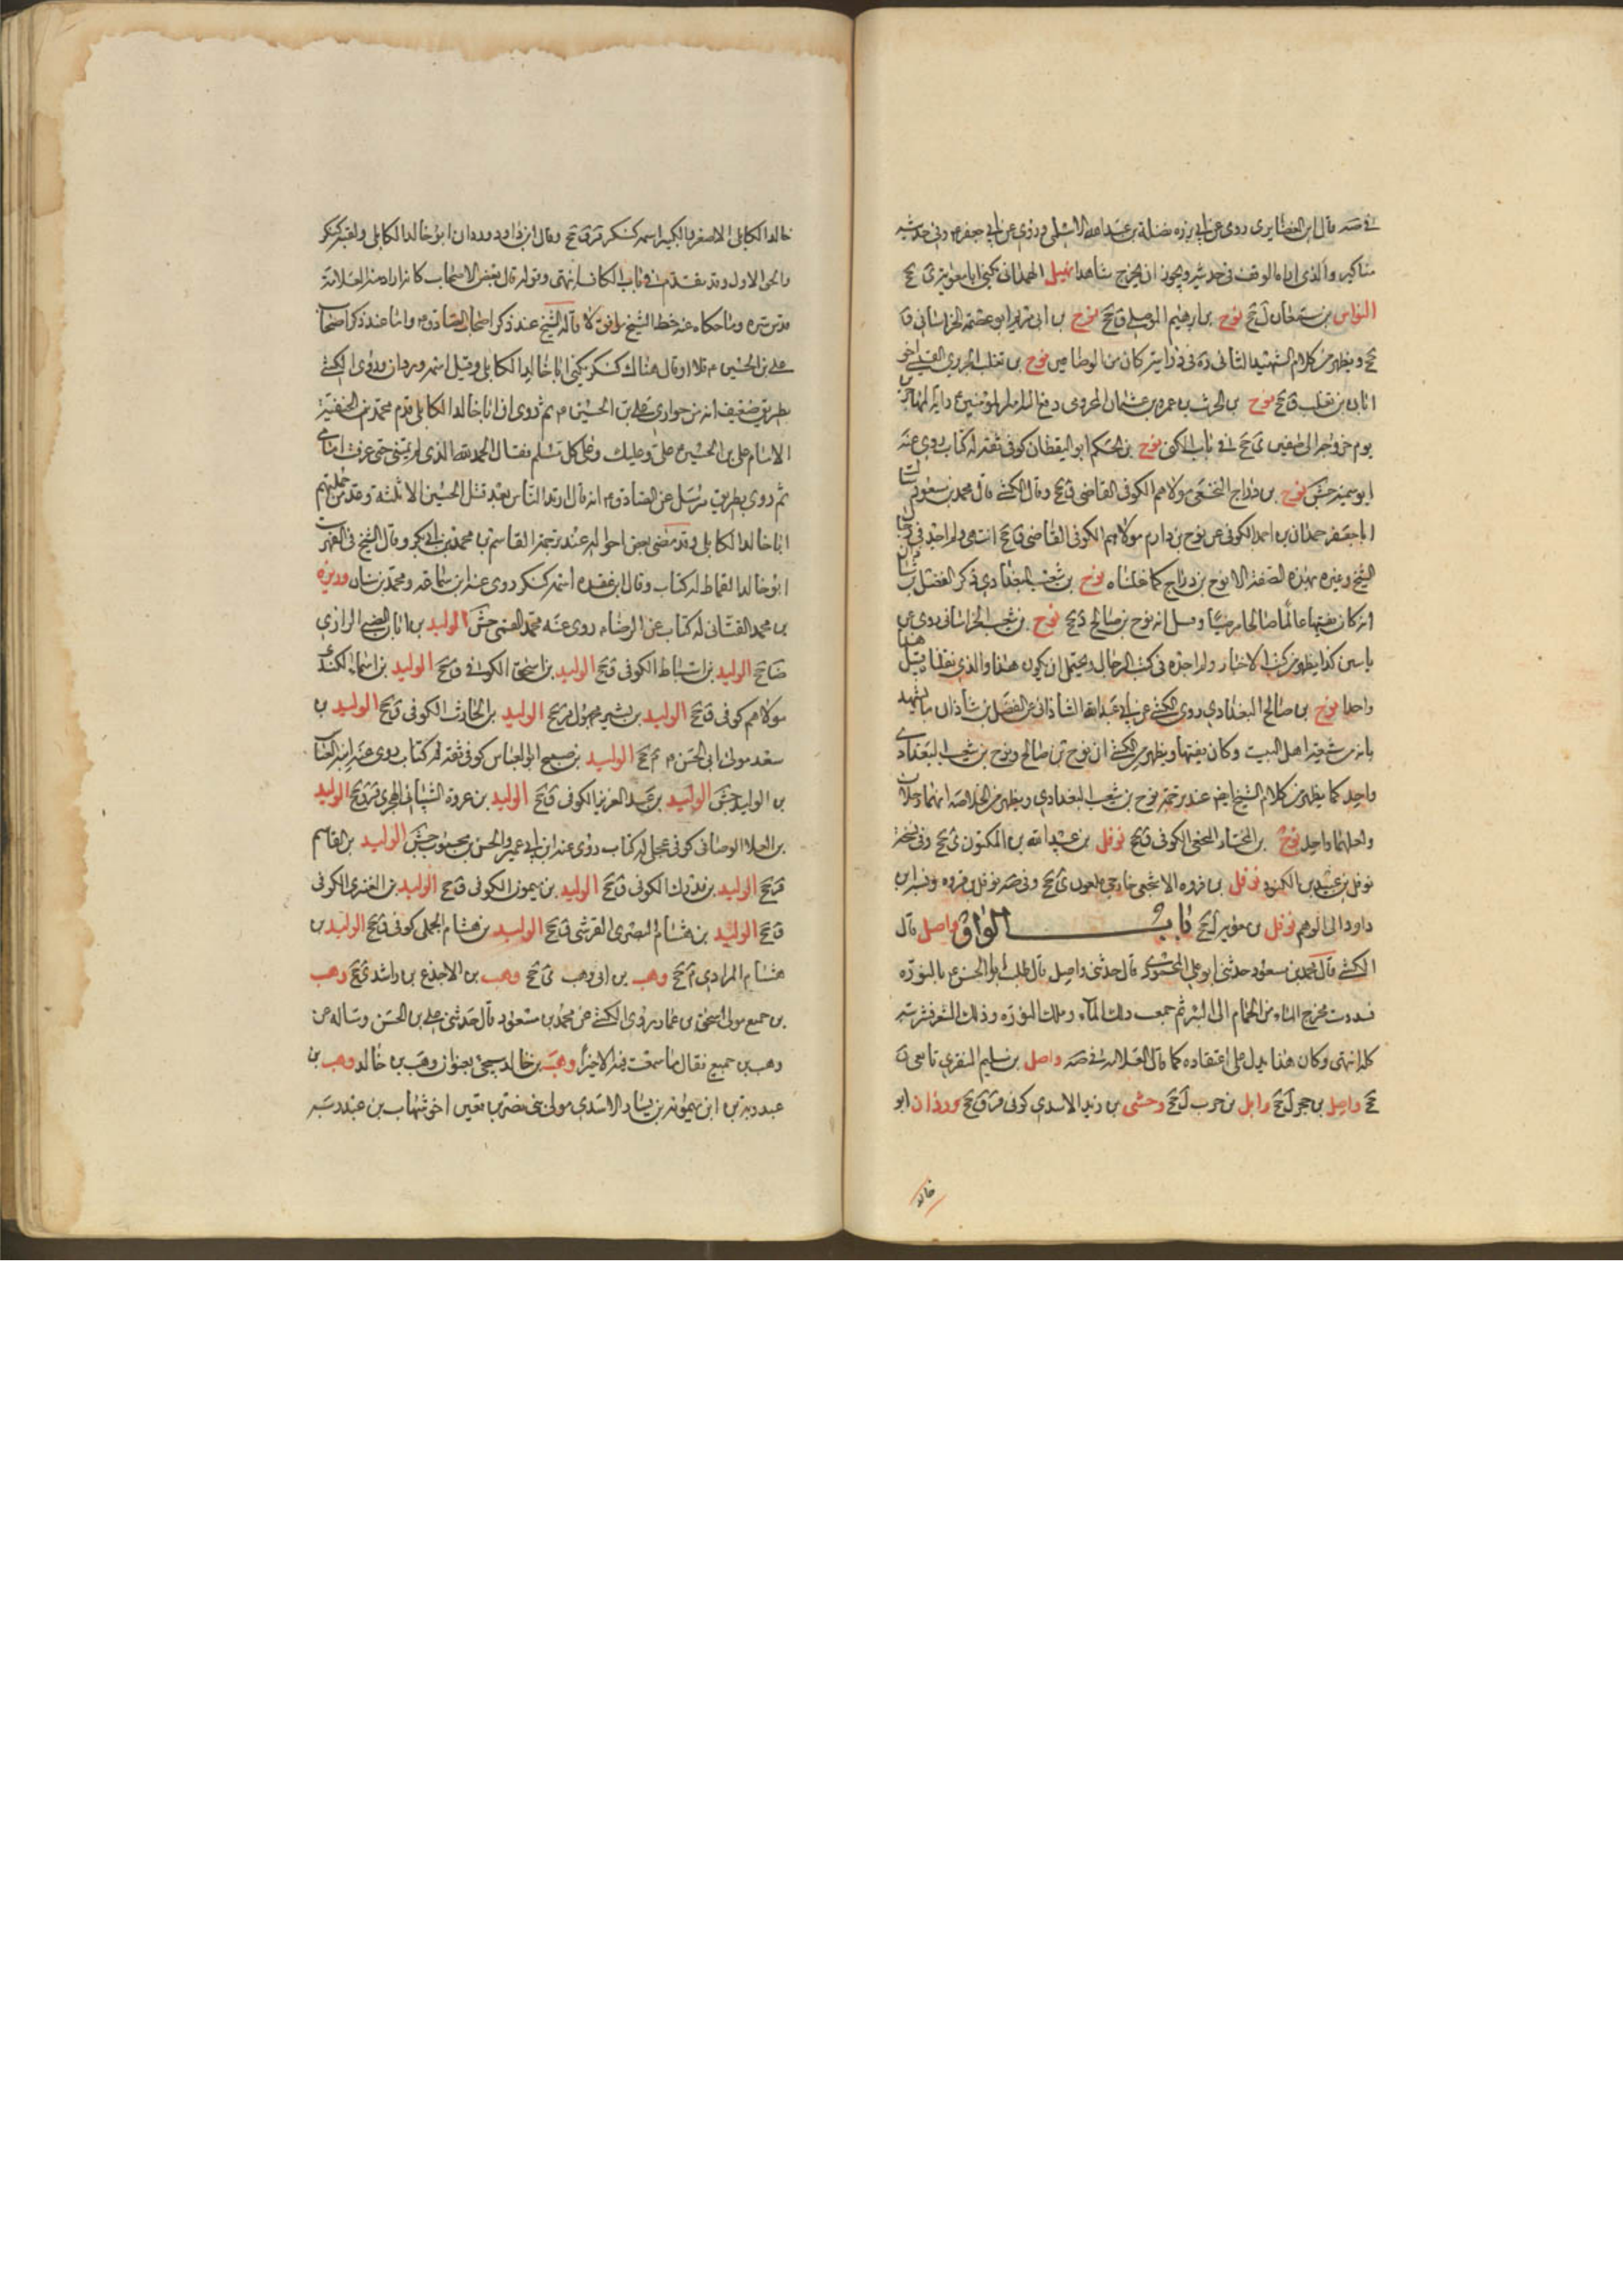 في صه قال ابن الغضايري روى عن ابي برزه نضلة بن عبد الله الاسلمي وروى عن ابي جعفر م وفي حديثه
مناكير والذي اراه الوقف في حديثه ويجوز ان يخرج شاهدا نهيل الهمداني يكنى ابا
النواس بن سمعان ل جخ نوح بن ابرهيم الموصلي ق جخ نوح بن ابي مريم ابو عصمه الخراساني ق
جخ ويظهر من كلام الشهيد الثاني ره في دراسته كان من الوضاعين نوح بن تغلب الجريري القيسي اخو
ابان بن تغلب ق جخ نوح بن الحرث بن عمرو بن عثمان المخزومي دفع اليه امير المؤمنين ع راية المهاجرين
يوم خروجه الى صفين ي جخ في باب الكنى نوح بن الحكم ابو اليقظان كوفي ثقه له كتاب روى عنه
ابو سمينه جش نوح بن دراج النخعي مولاهم الكوفي القاضي ق جخ وقال الكشي قال محمد بن مسعود سالت
ابا جعفر حمدان بن احمد الكوفي عن نوح بن دراج مولاهم الكوفي القاضي ق جخ انتهى ولم اجد في كتاب
الشيخ وغيره بهذه الصفة الا نوح بن دراج كما نقلناه نوح بن شعيب البغدادي ذكر الفضل بن شاذان
انه كان فقيها عالما صالحا مرضيا وقيل انه نوح بن صالح د جخ نوح بن شعيب الخراساني روى عن
ياسين كذا يظهر من كتب الاخبار ولم اجده في كتب الرجال ويحتمل ان يكون هذا والذي نقلنا قبل هذا
واحدا نوح بن صالح البغدادي روى الكشي عن ابي عبد الله الشاذاني عن الفضل بن شاذان ما يشهد
بانه من شيعة اهل البيت وكان فقيها ويظهر من الكشي ان نوح بن صالح ونوح بن شعيب البغدادي
واحد كما يظهر من كلام الشيخ ايضا عند ترجمة نوح بن شعيب البغدادي ويظهر من الخلاصه انهما رجلان
ولعلهما واحد نوح بن المختار النخعي الكوفي ق جخ نوفل بن عبيد الله بن المكنون ي جخ وفي نسخه
نوفل بن عبيد بن المكنود نوفل بن فروه الاشجعي خارجي ملعون ي جخ وفي صه نوفل بن قروه ونسبه ابن
داود الى الوهم نوفل بن معويه ل جخ باب الواو واصل قال
الكشي قال محمد بن مسعود حدثني ابو علي المحمودي قال حدثني واصل قال طليت ابا الحسن ع بالنوره
فسددت مخرج الماء من الحمام الى البئر ثم جمعت ذلك الماء وتلك النوره وذلك الشعر فشربته
كله انتهى وكان هذا يدل على اعتقاده كما قال العلامه في صه واصل بن سليم المنقري تابعي ق
جخ واصل بن حجر ل جخ وابل بن حرب ل جخ وحشى بن زيد الاسدي كوفي ق جخ وردان ابو
خالد
خالد الكابلي الاصغر والكبير اسمه كنكر قر ق جخ وقال ابن داود وردان ابو خالد الكابلي ولقبه كنكر
والحق الاول وقد تقدم في باب الكاف انتهى وقوله قال بعض الاصحاب كانه اراد منه العلامة
قدس سره وما حكاه عنه خط الشيخ يوافق لا ما قاله الشيخ عند ذكر اصحاب الصادق م واما عند ذكر اصحاب
علي بن الحسين م فلا او قال هناك كنكر يكنى ابا خالد الكابلي وقيل اسمه وردان وروى الكشي
بطريق ضعيف انه من حواري علي بن الحسين م ثم روى ان ابا خالد الكابلي خدم محمد بن الحنفية
الامام علي بن الحسين م علي وعليك وعلى كل مسلم فقال الحمد لله الذي لم يمتني حتى عرفت امامي
ثم روى بطريق مرسل عن الصادق م انه قال ارتد الناس بعد قتل الحسين الا ثلثة وعد من جملتهم
ابا خالد الكابلي وقد مضى بعض احواله عند ترجمة القاسم بن محمد بن ابي بكر وقال الشيخ في الفهرست
ابو خالد القماط له كتاب وقال ابن عقده اسمه كنكر روى عنه ابن سماعه ومحمد بن سنان وريزه
بن محمد الغساني له كتاب عن الرضا م روى عنه محمد القمي جش الوليد بن ابان الضبي الرازي
ضا جخ الوليد بن اسباط الكوفي ق جخ الوليد بن اسحق الكوفي ق جخ الوليد بن اسماء الكندي
مولاهم كوفي ق جخ الوليد بن بشير مجهول قر جخ الوليد بن الحارث الكوفي ق جخ الوليد بن
سعد مولى ابي الحسن م م جخ الوليد بن صبيح ابو العباس كوفي ثقه له كتاب روى عنه ابنه العباس
بن الوليد جش الوليد بن عبد العزيز الكوفي ق جخ الوليد بن عروة الشيباني الهجري قر ق جخ الوليد
بن العلا الوصافي كوفي عجلي له كتاب روى عنه ابن ابي عمير والحسن بن محبوب جش الوليد بن القاسم
قر جخ الوليد بن مدرك الكوفي ق جخ الوليد بن ميمون الكوفي ق جخ الوليد بن الكوفي
ق جخ الوليد بن هشام المصري القرشي ق جخ الوليد بن هشام البجلي كوفي ق جخ الوليد بن
هشام المرادي م جخ وهب بن ابي وهب ي جخ وهب بن الاجذع بن راشد ي جخ وهب
بن جميع مولى اسحق بن عمار روى الكشي عن محمد بن مسعود قال حدثني علي بن الحسن وساله عن
وهب بن جميع فقال ما سمعت فيه الا خيرا وهب بن خالد سيجئ بعنوان وهيب بن خالد وهب بن
عبد ربه بن ابي ميمونه بن يسار الاسدي مولى بني نصر بن قعين اخو شهاب بن عبد ربه